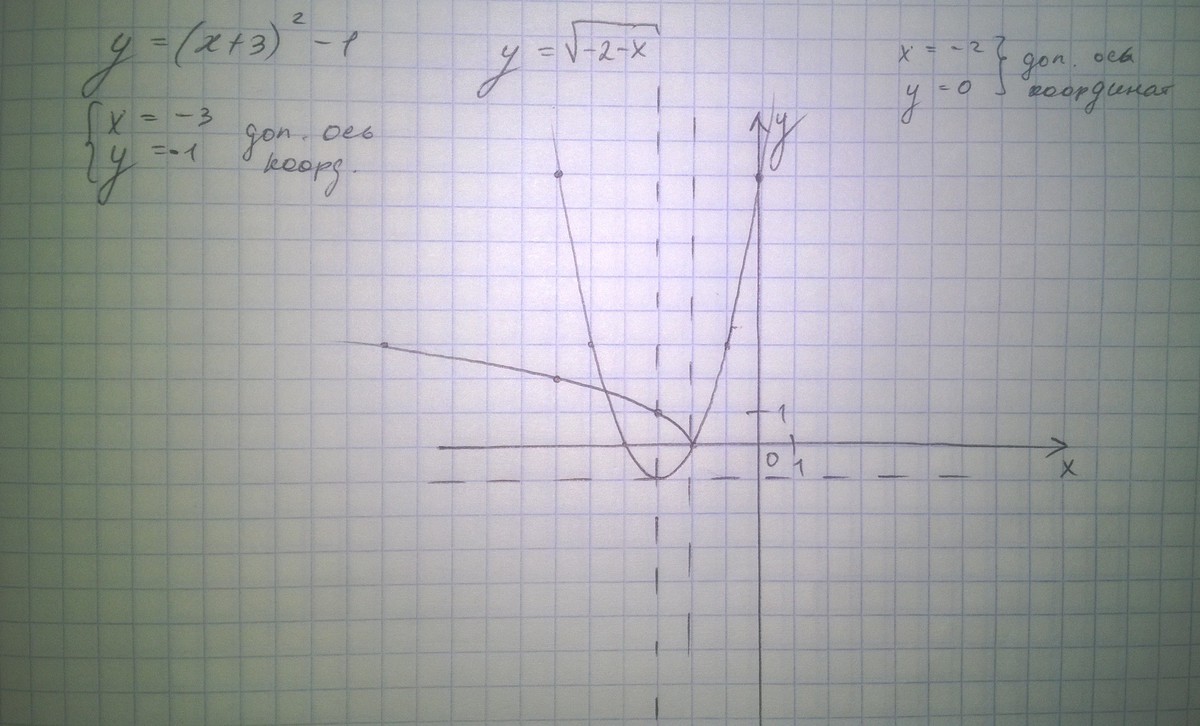 y = (x+3)² - 1
{ x = -3
y = -1 доп. ось
коорд.
y = √-2-x
x = -2 } доп. ось
y = 0 координат
y
1
0 1
x